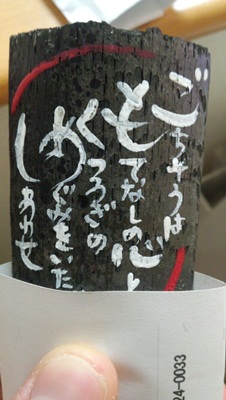 ごちそうは
もてなしの心と
くつろぎの
めぐみをいた
しあわせ
24-0033